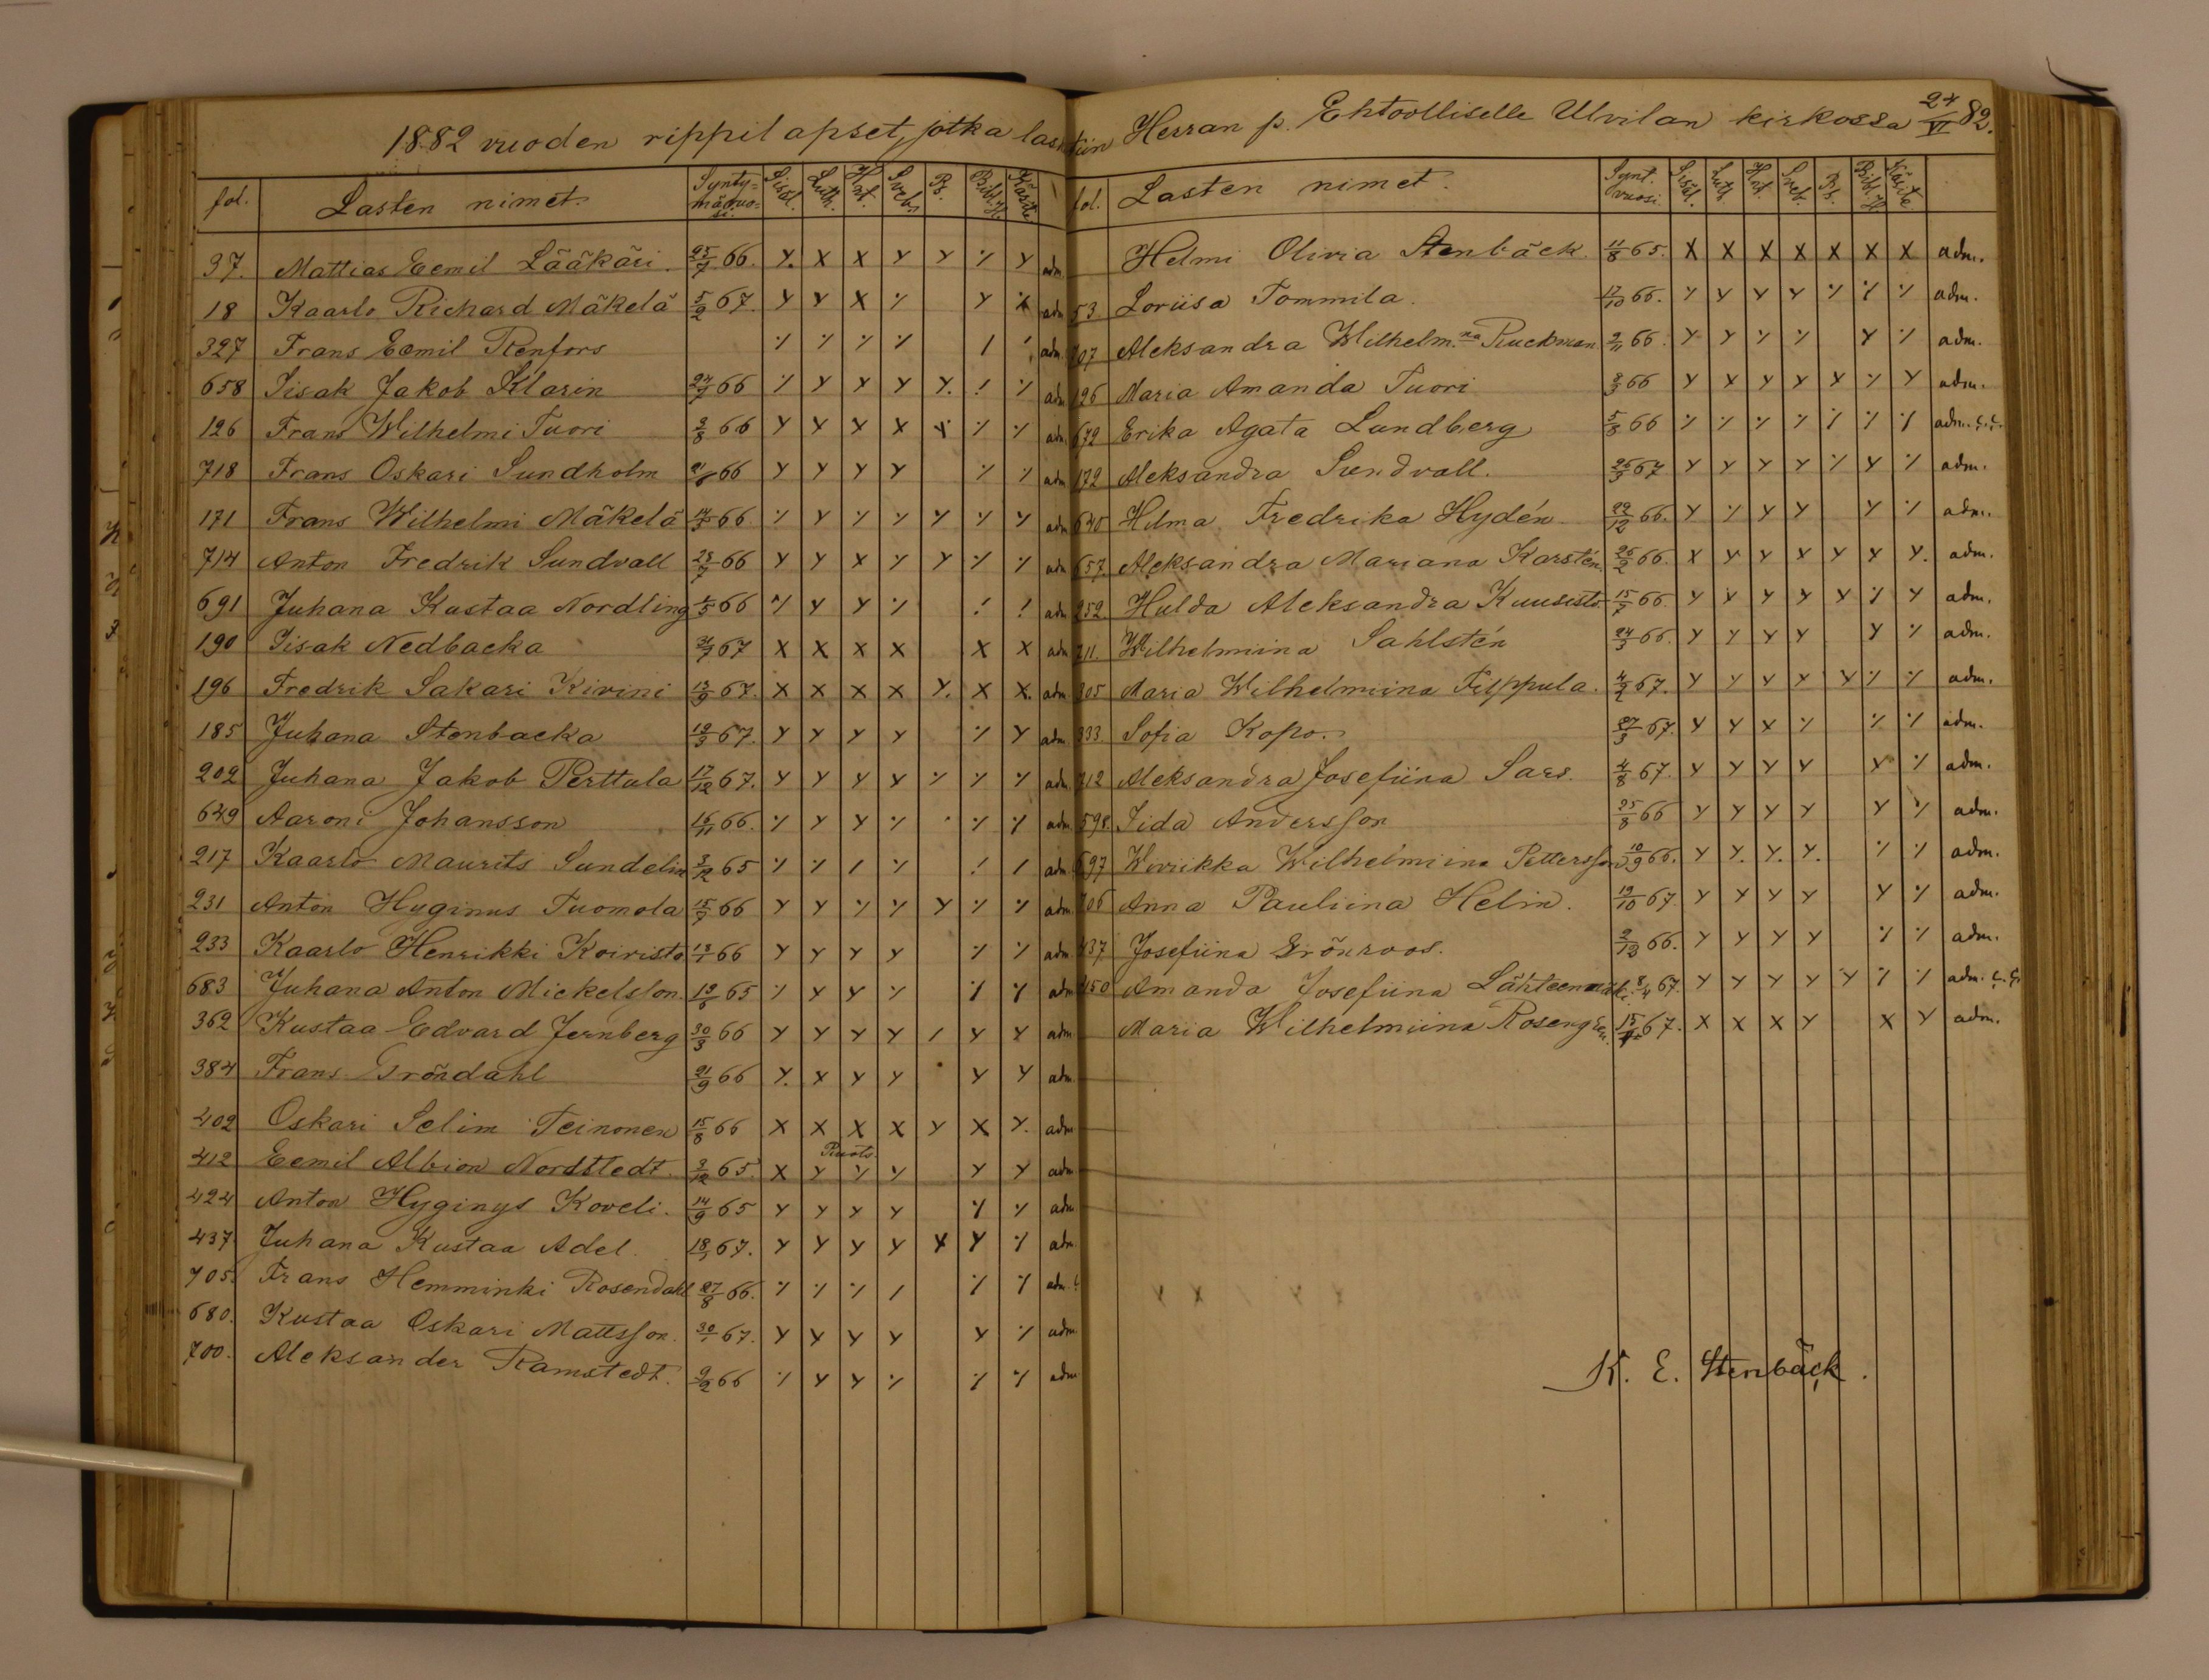 1882 vuoden rippilapset, jotka lasketiin Herran p. Ehtoolliselle Ulvilan kirkossa 24/VI 82.
fol. Lasten nimet. Synty=mävuo=si. Sisäl. Luth. Hat. Sveb. Ps. Bibl. H. Käsite
37. Mattias Eemil Lääkäri. 25/7 66. Y. X X Y Y ٪ Y adm.
18 Kaarlo Richard Mäkelä 5/2 67. Y Y X ٪ Y ٪ adm
327 Frans Eemil Renfors ٪ ٪ ٪ ٪ / ! adm.
658 Iisak Jakob Klarin 24/7 66 ٪ Y Y Y Y. ! ٪ adm
126 Frans Wilhelmi Tuori 2/8 66 Y Y X X Y ٪ ٪ adm.
718 Frans Oskari Sundholm 21/8 66 Y Y Y Y ٪ ٪ adm
171 Frans Wilhelmi Mäkelä 14/3 66 ٪ Y ٪ ٪ Y ٪ Y adm
714 Anton Fredrik Sundvall 23/7 66 Y Y X ٪ Y ٪ ٪ adm
691 Juhana Kustaa Nordling 1/5 66 ٪ Y Y ٪ ! ! adm
190 Iisak Nedbacka 3/7 67 X X X X X X adm
196 Fredrik Sakari Kivini 13/9 67. X X X X Y. X X. adm
185 Juhana Stenbacka 19/3 67. Y Y Y Y ٪ Y adm
202 Juhana Jakob Perttula 17/12 67. Y Y Y Y ٪ ٪ ٪ adm
649 Aaroni Johansson 16/11 66. ٪ Y Y ٪ ٪ ٪ adm
217 Kaarlo Maurits Sundelin 3/12 65 ٪ ٪ / ٪ ! / adm
231 Anton Hyginus Tuomola 15/7 66 Y Y ٪ ٪ Y ٪ ٪ adm
233 Kaarlo Henrikki Koivisto 13/1 66 Y Y Y Y ٪ ٪ adm
683 Juhana Anton Mickelsson. 19/6 65 ٪ Y Y ٪ ٪ ٪ adm
362 Kustaa Edvard Jernberg 30/3 66 Y Y Y Y / Y Y adm
384 Frans Gröndahl 21/9 66 Y. X Y Y Y Y adm
402 Oskari Selim Teinonen 15/8 66 X X X X Y X Y. adm
Ruots.
412 Eemil Albion Nordstedt. 3/12 65 X Y Y Y Y Y adm
424 Anton Hyginys Koveli. 14/9 65 Y Y Y Y ٪ ٪ adm
437 Juhana Kustaa Adel. 18/3 67. Y Y Y Y X Y ٪ adm
705. Frans Hemminki Rosendahl 27/8 66. ٪ ٪ ٪ / ٪ ٪ adm.
680. Kustaa Oskari Mattsson. 30/1 67. Y Y Y Y Y ٪ adm
700. Aleksander Ramstedt. 9/2 66 ٪ Y Y ٪ ٪ ٪ adm
fol. Lasten nimet. Synt. vuosi. Sisäl. Luth. Hat. Sveb. Ps. Bibl. H. Käsite
Helmi Olivia Stenbäck. 11/8 65. X X X X X X X adm.
53. Loviisa Tommila. 17/10 66. ٪ Y Y Y ٪ ٪ ٪ adm.
Aleksandra Wilhelm.na Ruckman 2/11 66. Y Y ٪ ٪ Y ٪ adm.
126 Maria Amanda Tuori 8/3 66 Y X Y Y X ٪ Y adm.
672 Erika Agata Lundberg 5/8 66 ٪ ٪ ٪ ٪ ٪ ٪ ٪ adm.
172 Aleksandra Sundvall. 26/3 67 Y Y Y Y ٪ Y ٪ adm.
640 Hilma Fredrika Hydén. 22/12 66. Y ٪ Y Y Y ٪ adm.
657. Aleksandra Mariana Karstén. 26/2 66. X Y Y X Y X Y. adm.
252 Hulda Aleksandra Kuusisto 15/7 66. Y Y Y Y Y ٪ Y adm.
211. Wilhelmiina Sahlstén 24/3 66. Y ٪ Y Y Y ٪ adm.
205 Maria Wilhelmiina Filppula. 4/2 67. Y ٪ Y Y Y ٪ ٪ adm.
333 Sofia Kopo. 27/3 67. Y Y X ٪ ٪ ٪ adm.
212 Aleksandra Josefiina Sars. 4/8 67. Y Y Y Y Y ٪ adm.
598. Iida Andersson 25/8 66 Y Y Y Y Y ٪ adm.
697 Werikka Wilhelmiina Pettersson 10/9 66. Y Y. Y. Y. ٪ ٪ adm.
Anna Pauliina Helin. 19/10 67. Y Y Y Y Y ٪ adm.
437 Josefiina Grönroos. 2/12 66. Y Y Y Y ٪ ٪ adm.
450 Amanda Josefiina Lähteenmäki. 8/4 67. Y Y Y Y Y ٪ ٪ adm.
Maria Wilhelmiina Rosengren. 67. X X X Y X Y adm.
K. E. Stenbäck.